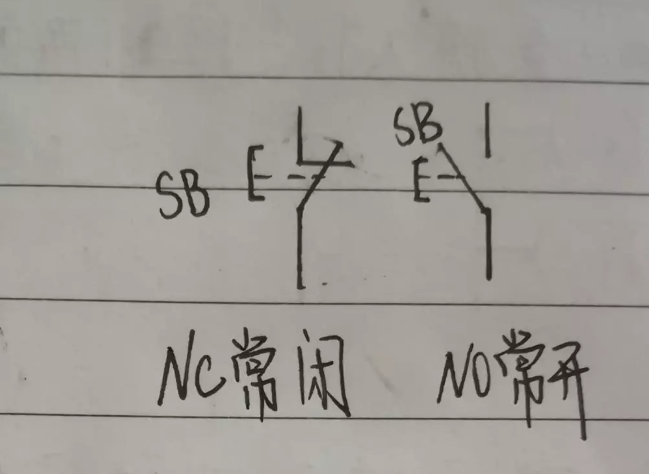 SB
SB
NC常闭 NO常开